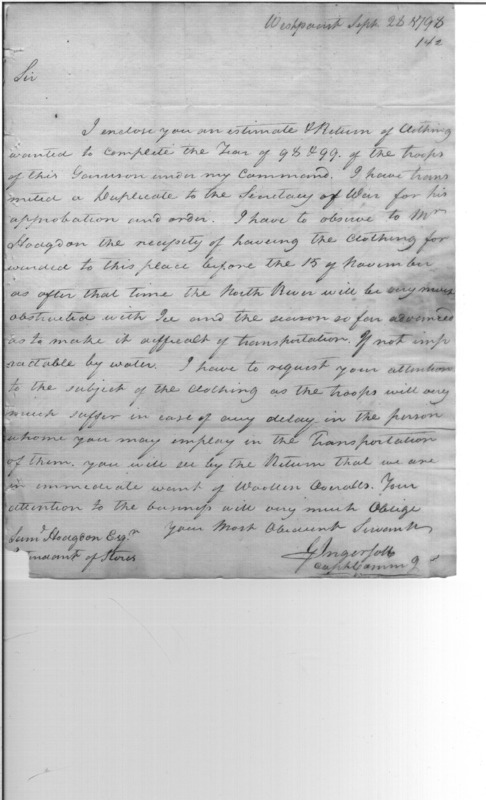 Westpoint Sept. 26 1798
142
Sir
I enclose you an estimate & Return of Clothing
wanted to complete the Year of 98 & 99. of the troops
of this Garrison under my Command. I have trans
mited a Duplicate to the Secretary of War for his
approbation and order. I have to observe to Mr
Hodgdon the necessity of haveing the Clothing for
warded to this place before the 15 of November
as after that time the North River will be very much
obstructed with Ice and the season so far advanced
as to make it difficult of transportation. If not imp
ractable by water. I have to request your attention
to the subject of the Clothing as the troops will very
much suffer in case of any delay in the person
whome you may employ in the Transportation
of them. you will see by the Return that we are
in immediate want of Woollen Overalls. Your
attention to the business will very much Oblige
Your Most Obedient Servant
Saml Hodgdon Esqr
of Stores
G Ingersoll
Capt Comming